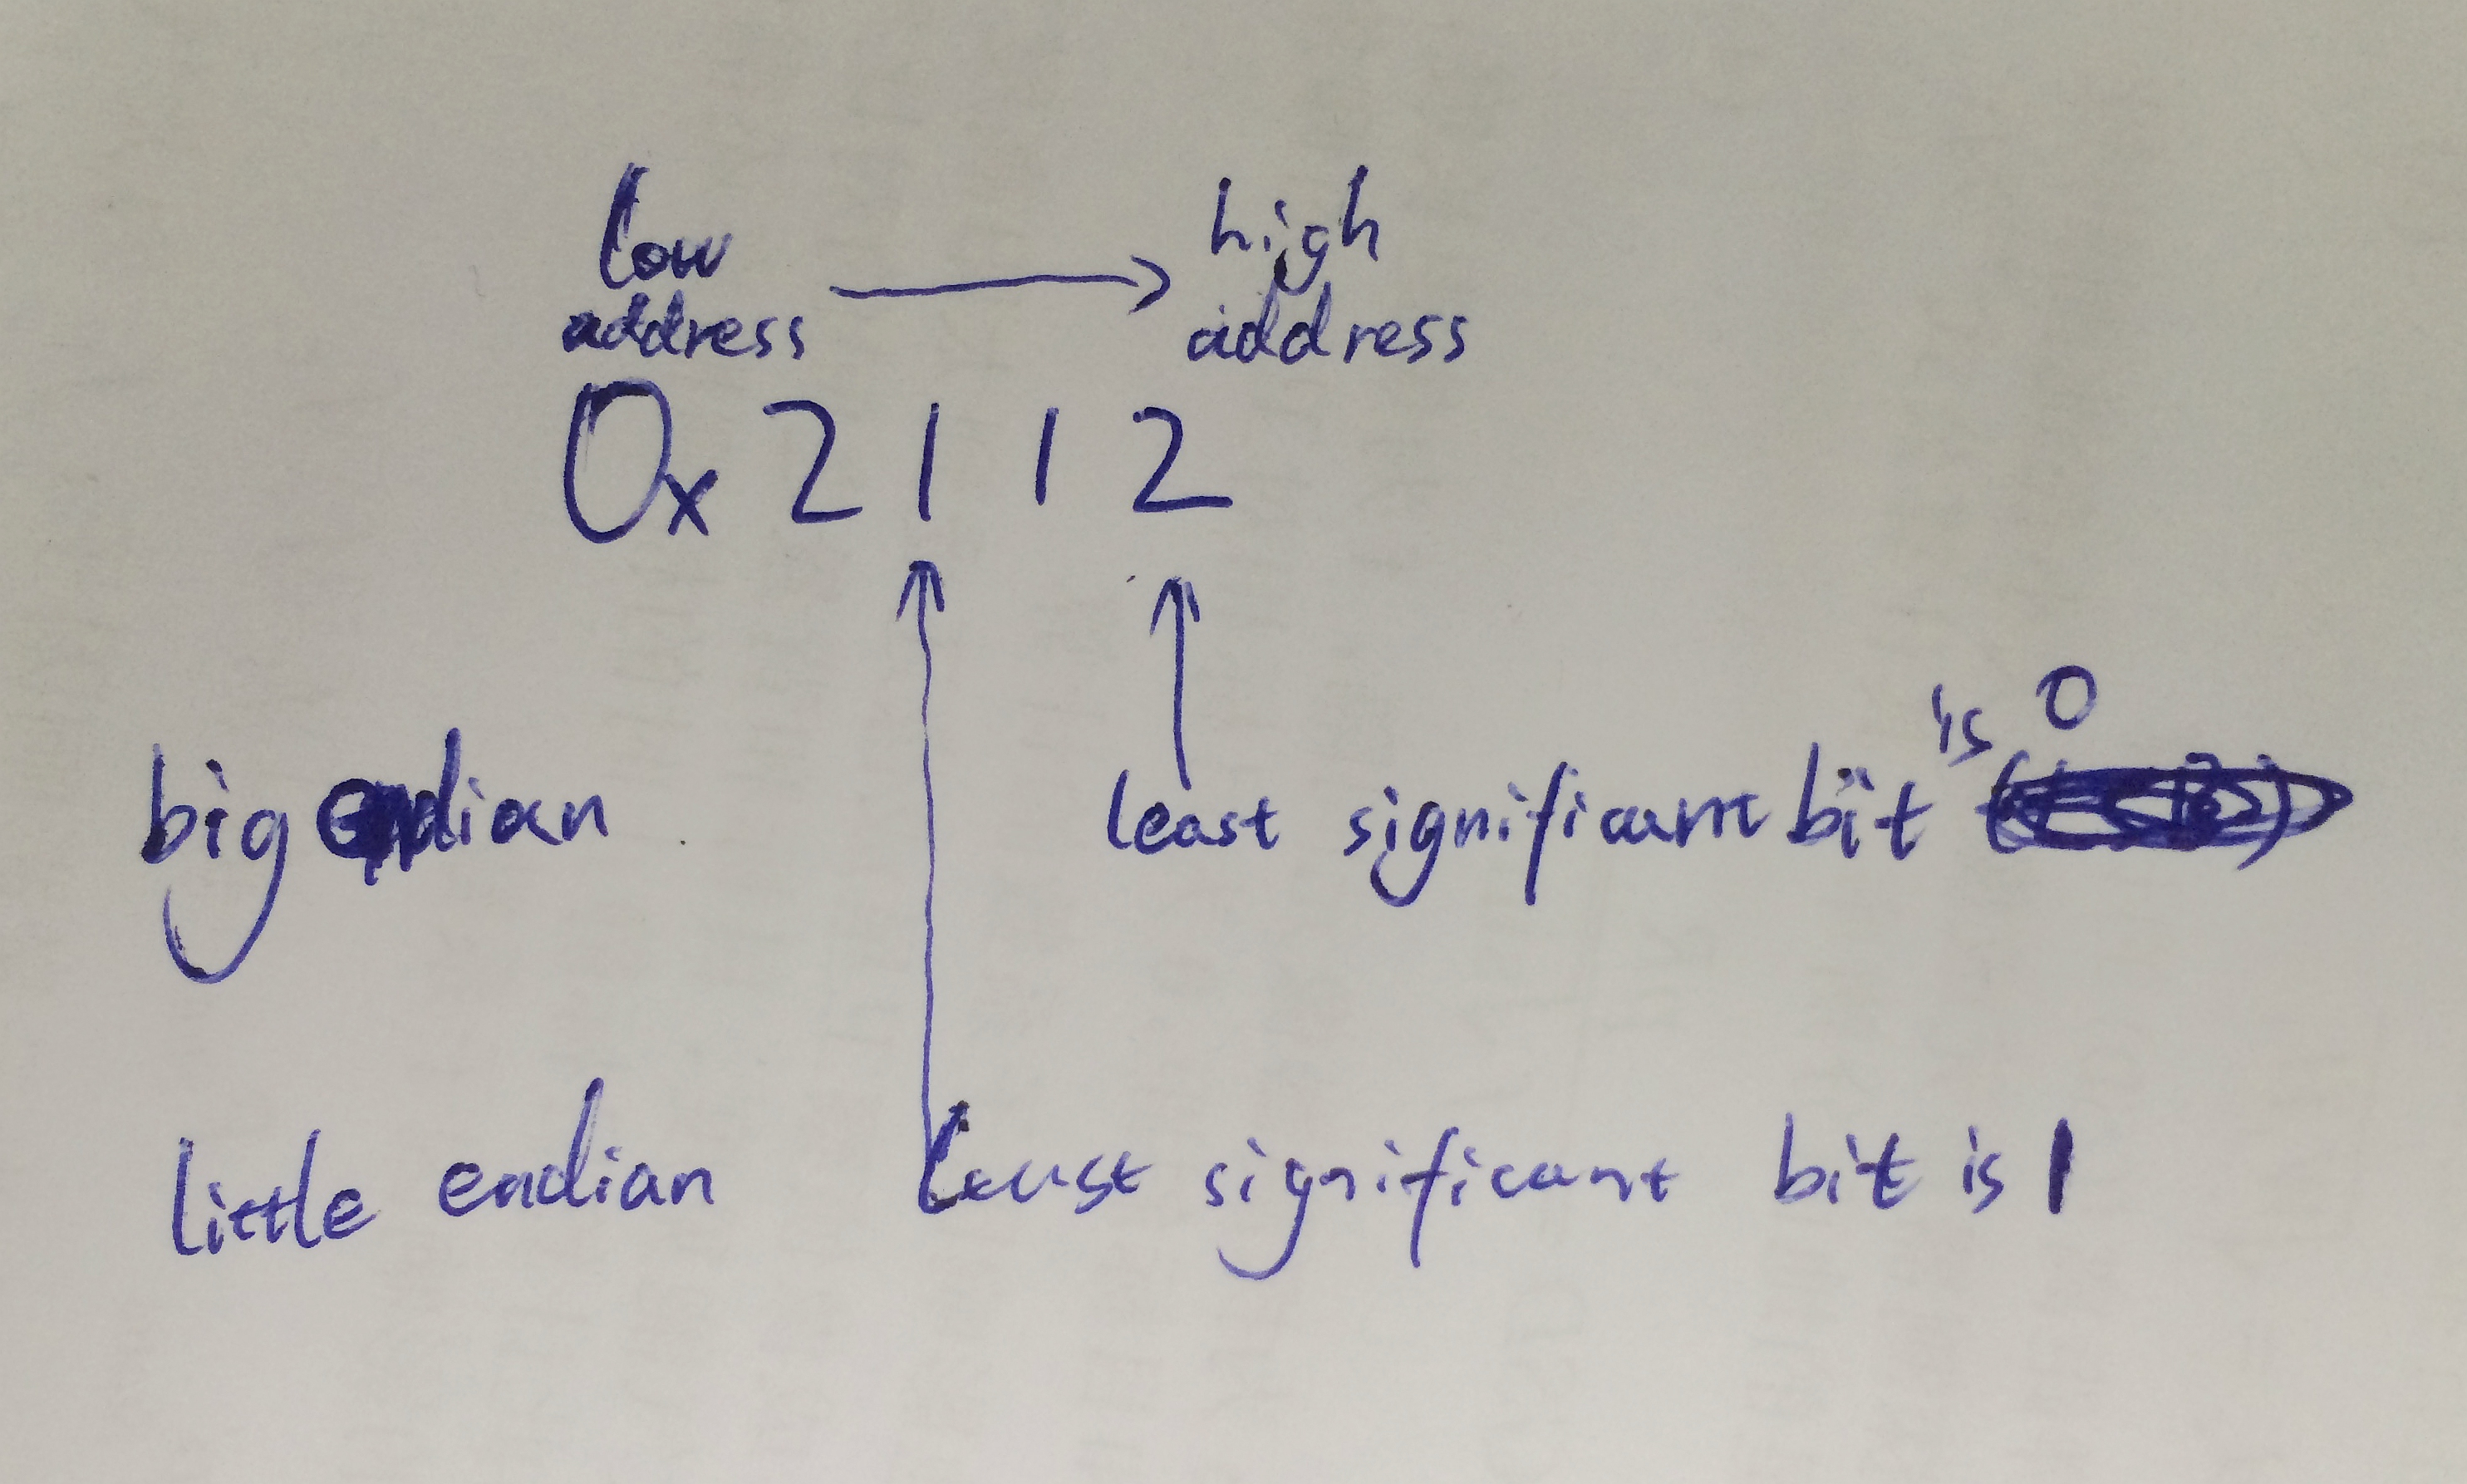 low high
address address
0x 2 1 1 2
big endian least significant bit is 0
little endian least significant bit is 1